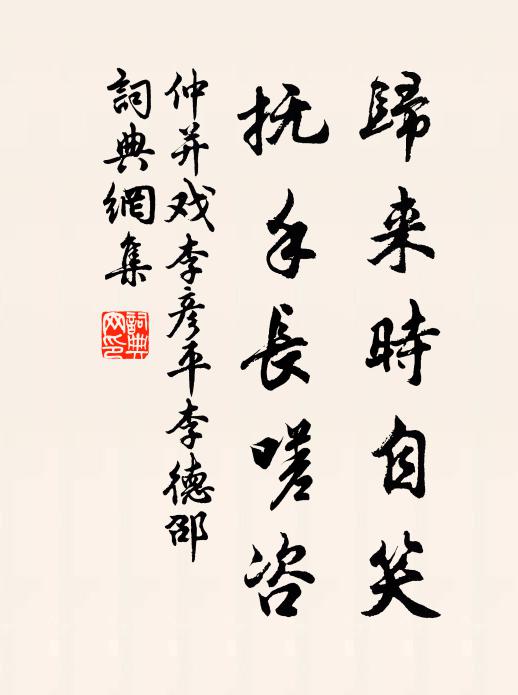 歸来時自笑
抚手長嗟咨
仲并戏李彦平李德邵
詞典網集
詞典网印